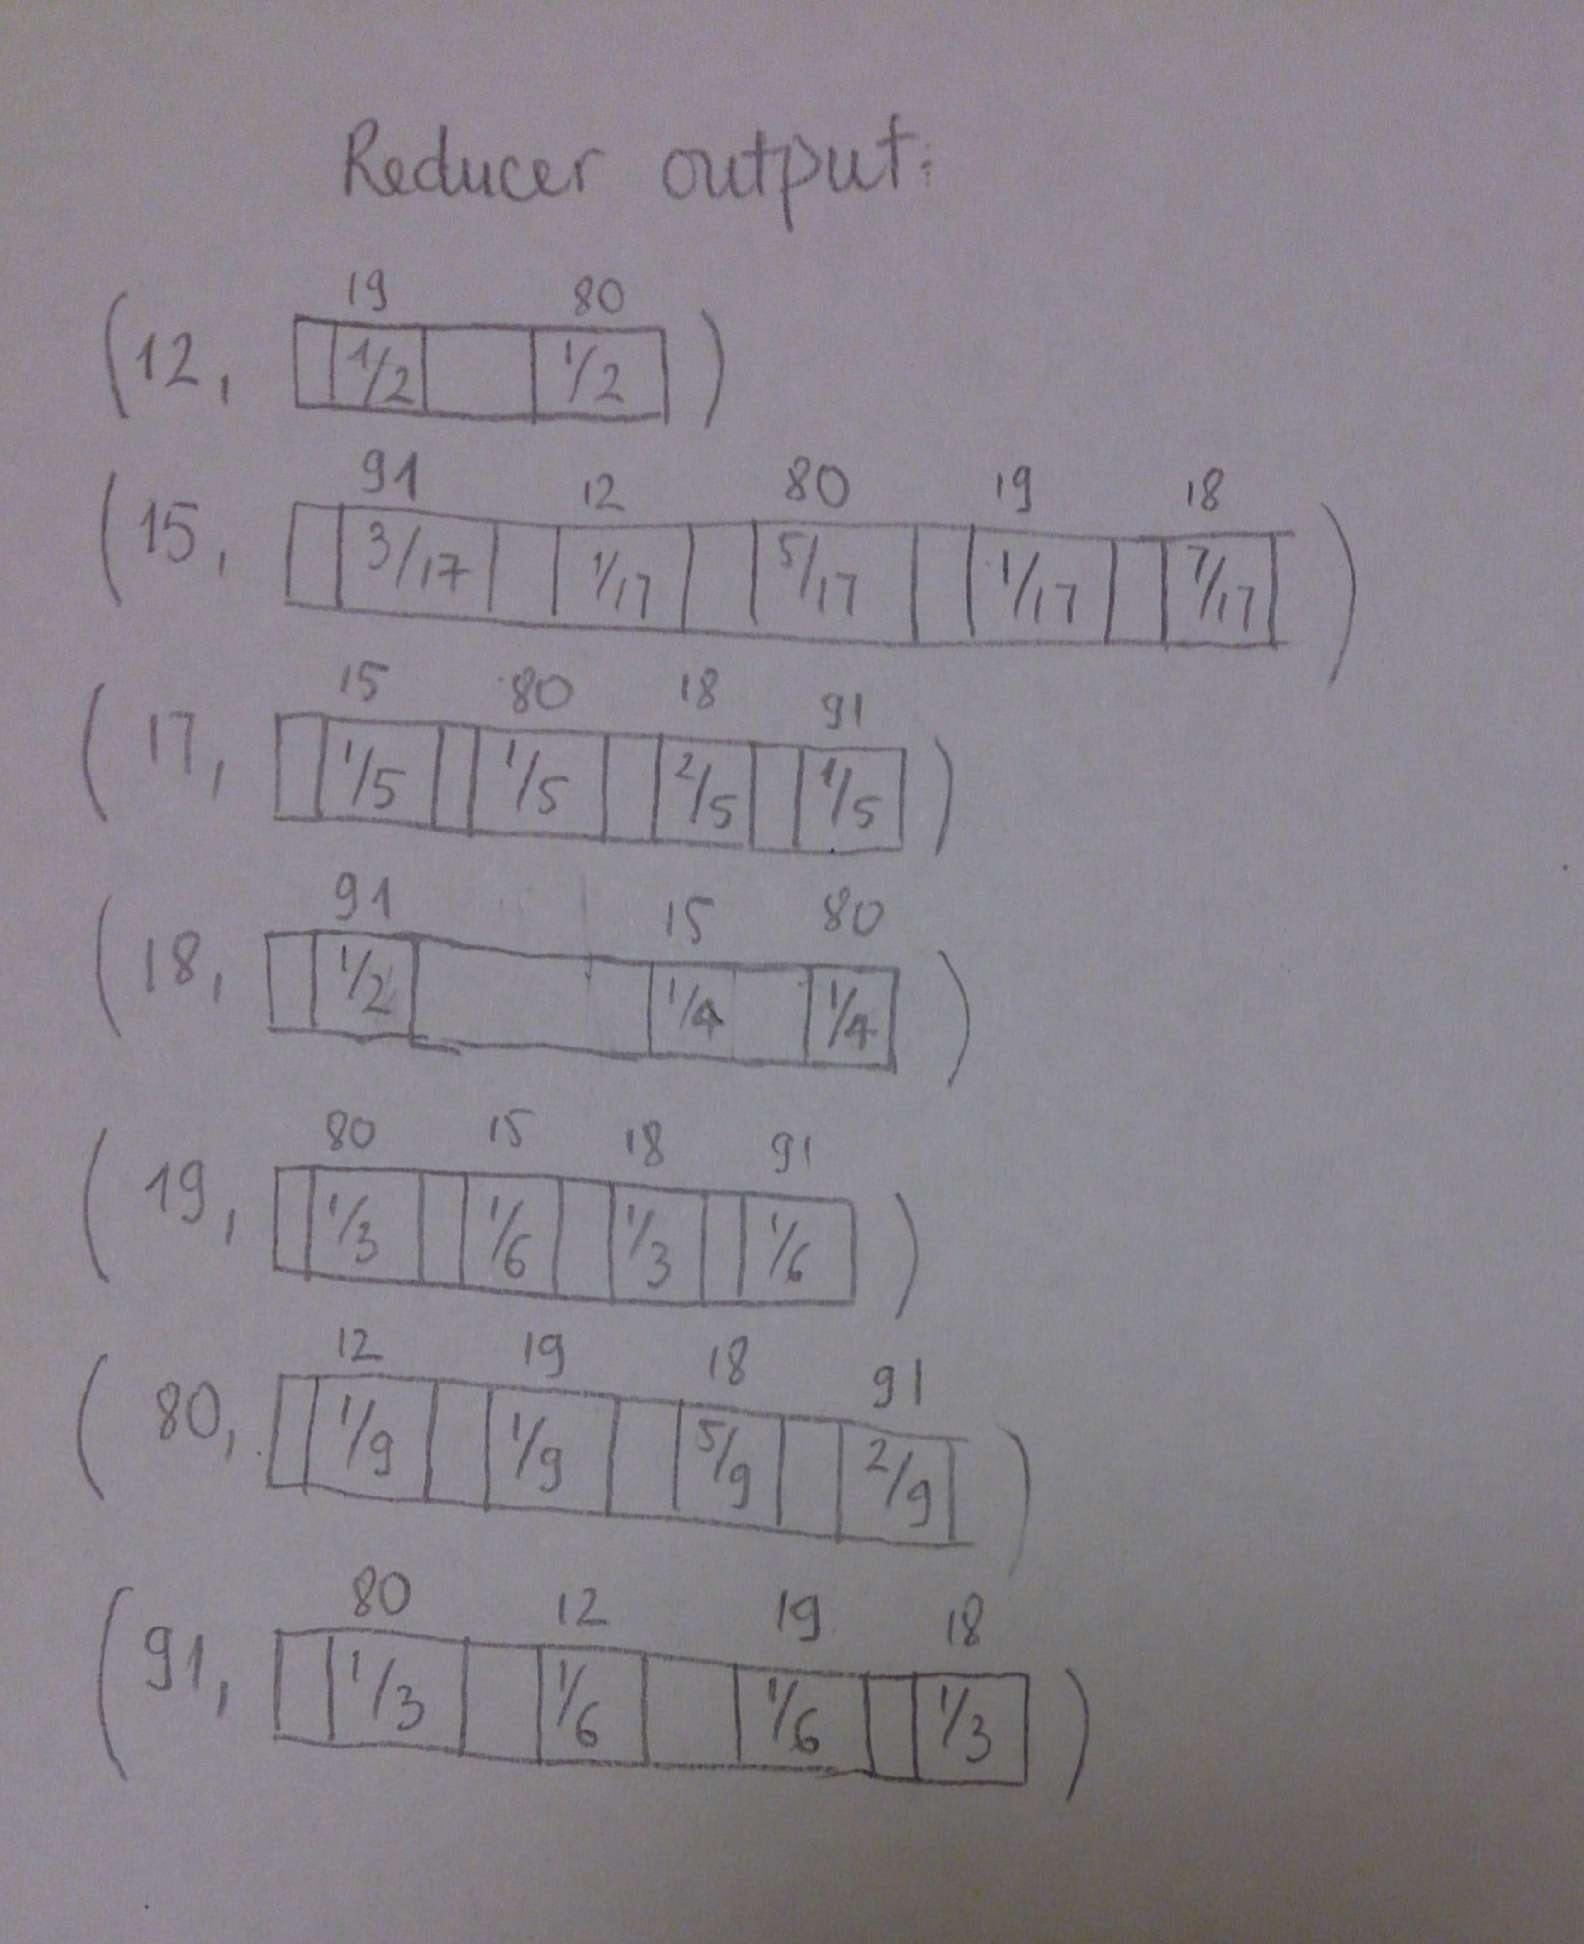 Reducer output:
19 80
(12, 1/2 1/2 )
91 12 80 19 18
(15, 3/17 1/17 5/17 1/17 7/17 )
15 80 18 91
( 17, 1/5 1/5 2/5 1/5 )
91 15 80
( 18, 1/2 1/4 1/4 )
80 15 18 91
( 19, 1/3 1/6 1/3 1/6 )
12 19 18 91
( 80, 1/9 1/9 5/9 2/9 )
80 12 19 18
( 91, 1/3 1/6 1/6 1/3 )